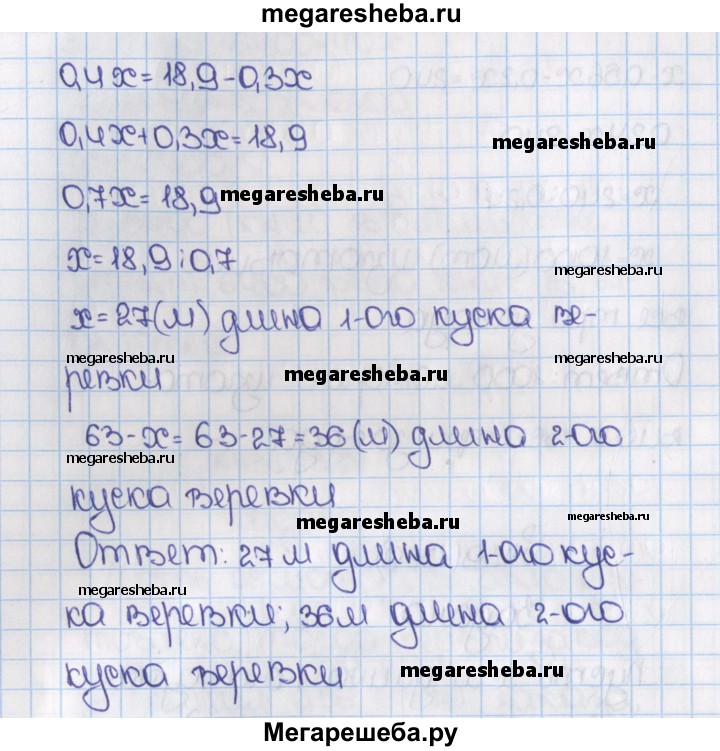 megaresheba.ru
0,4x=18,9-0,3x
0,4x+0,3x=18,9
megaresheba.ru
0,7x=18,9 megaresheba.ru
x=18,9:0,7
megaresheba.ru
x=27(м) длина 1-ого куска ве-
megaresheba.ru
ревки megaresheba.ru
63-x=63-27=36(м) длина 2-ого
megaresheba.ru
куска веревки
megaresheba.ru megaresheba.ru
Ответ: 27м длина 1-ого кус-
megaresheba.ru
ка веревки; 36м длина 2-ого
куска веревки megaresheba.ru
Мегарешеба.ру